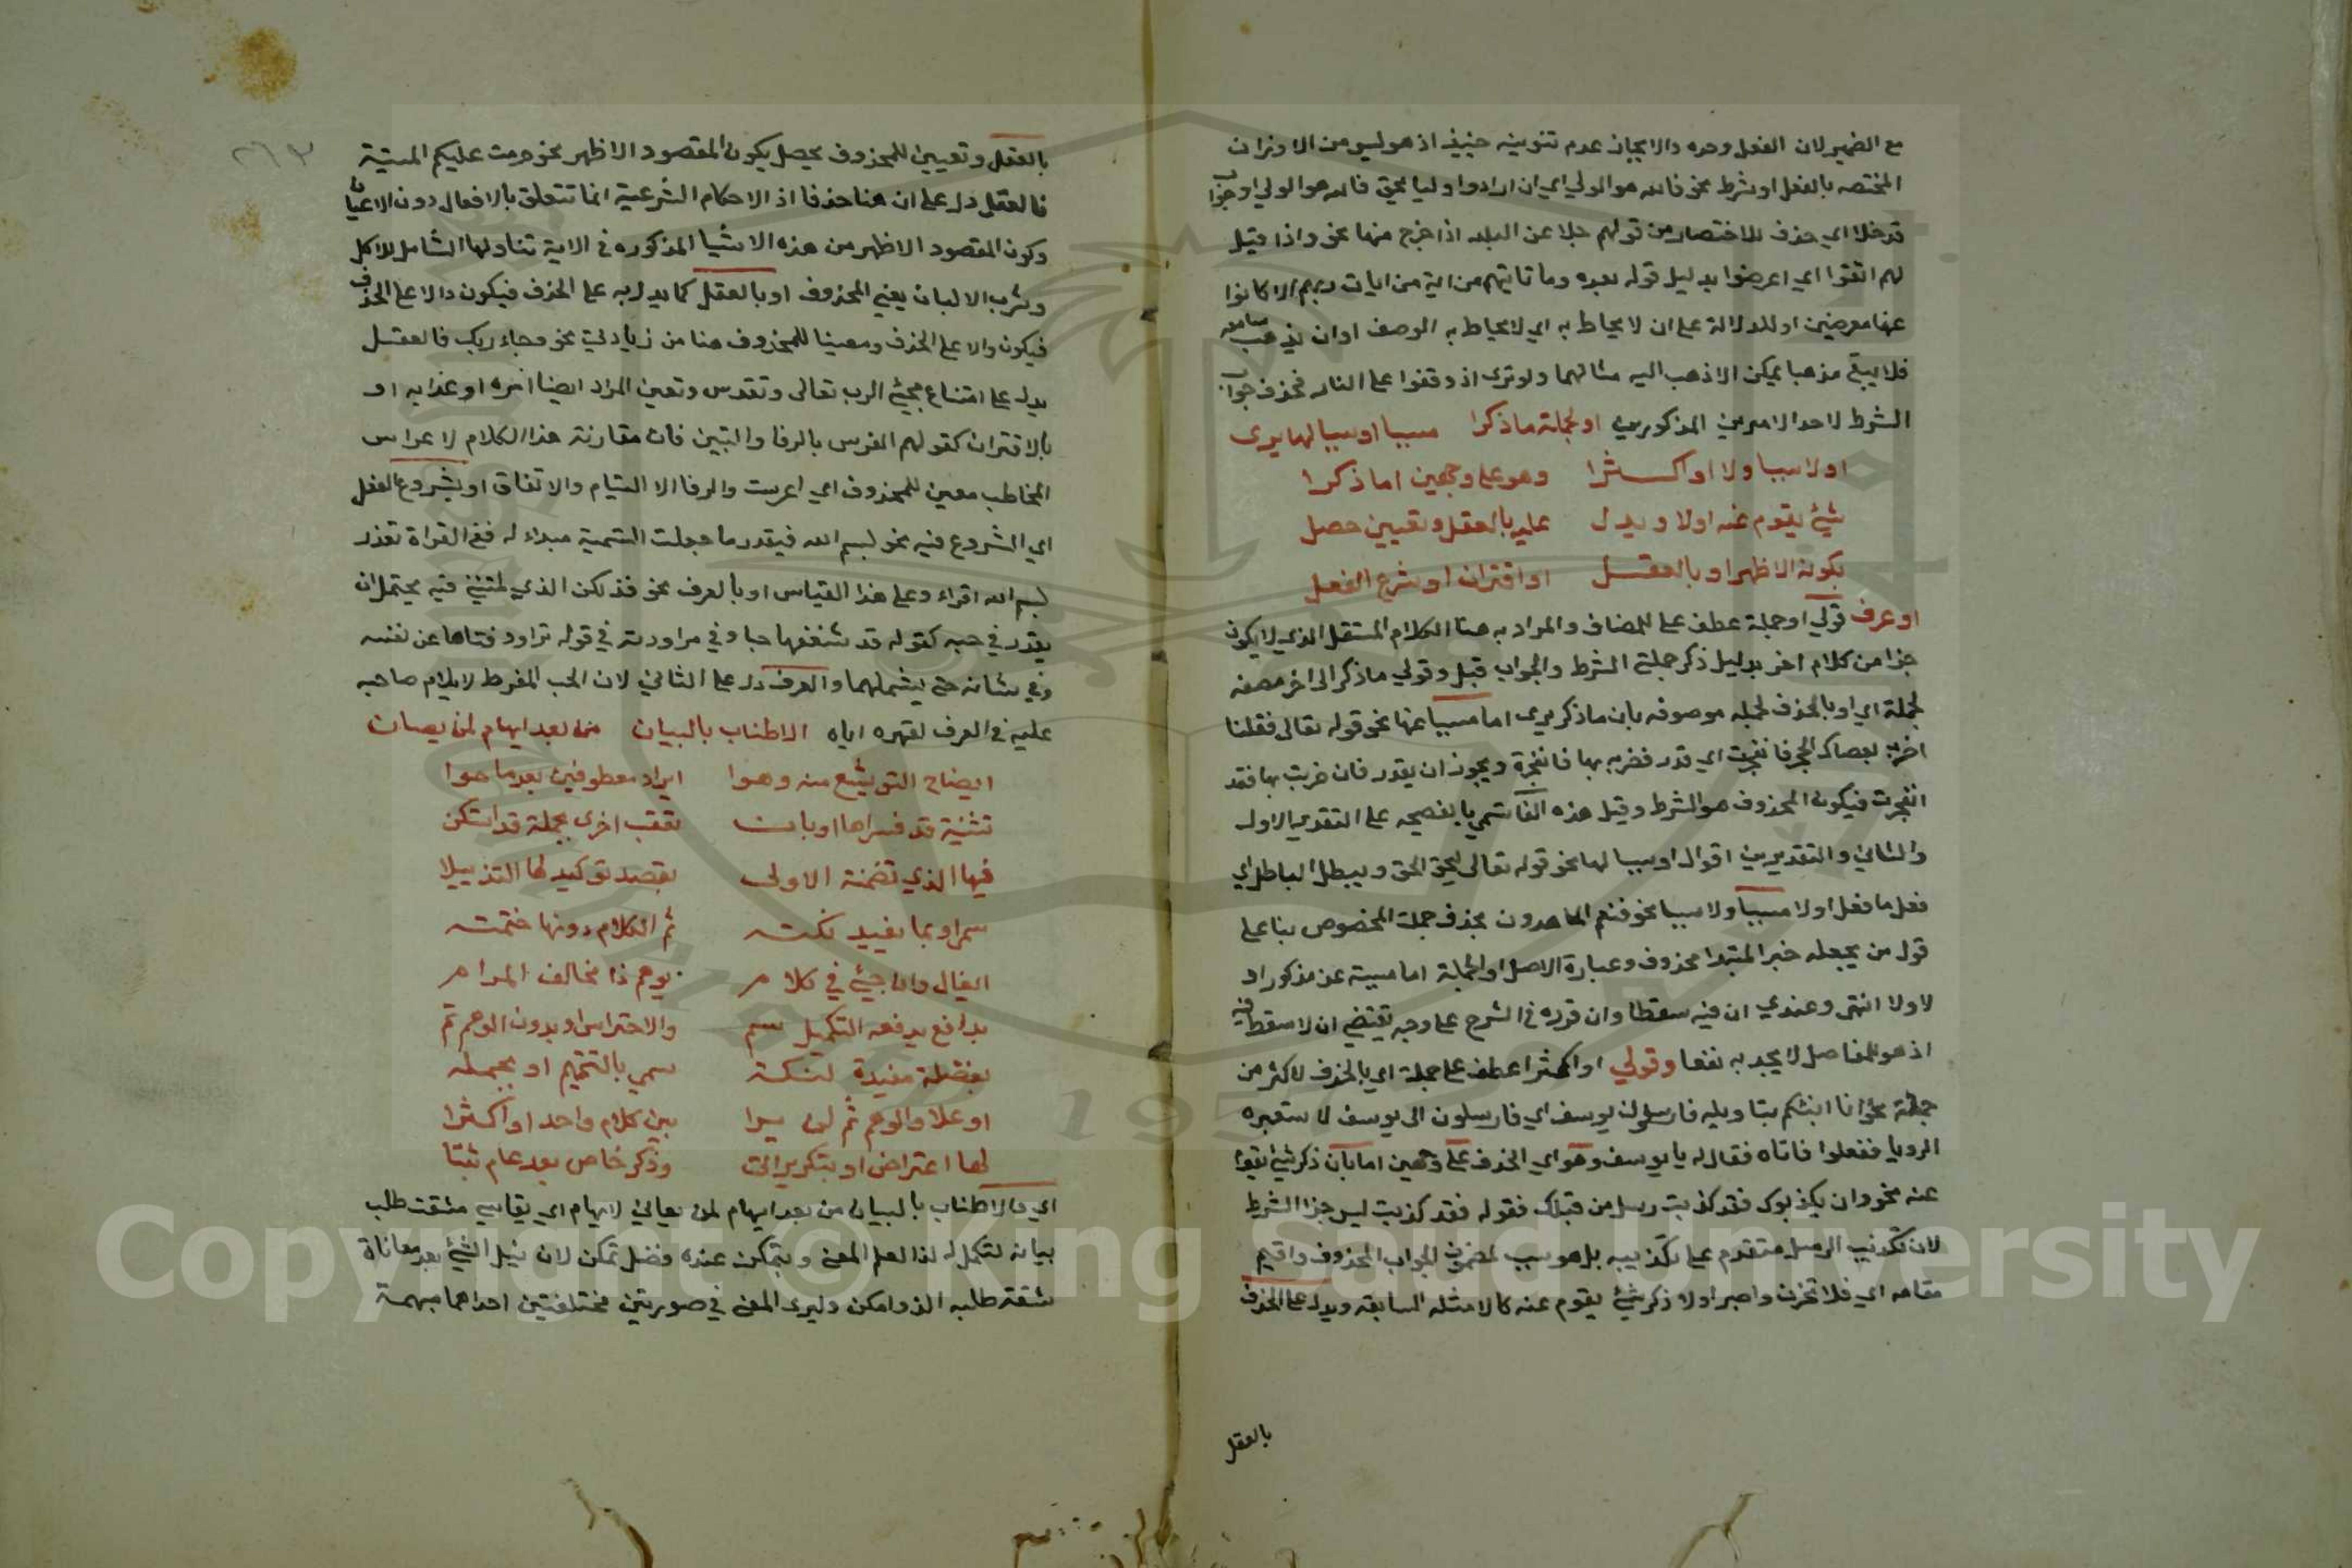 مع الضمير لان الفعل وحده والايجاز عدم تنوينه حينيذ اذ هو ليس من الاوزان
المختصه بالفعل او شرط نحو فالله هو الولي اي ان ارادوا وليا بحق فالله هو الولي او جواب
قد خلا اي حذف للاختصار من قولهم جلا عن البلد اذا خرج منها نحو واذا قيل
لهم اتقوا اي اعرضوا بدليل قوله بعده وما تاتيهم من اية من ايات ربهم الا كانوا
عنها معرضين او للدلالة على ان لا يحاط به اي لا يحاط به الوصف او ان يذهب سامعه
فلا يبقي مذهبا يمكن الا ذهب اليه مثالهما ولو تري اذ وقفوا على النار فحذف جواب
الشرط لاحد الامرين المذكورين او لجملة ما ذكرا مسببا او سببا لها يرى
او لا سببا ولا او اكثرا وهو على وجهين اما ذكرا
شيئ يقوم عنه اولا ويدل عليه بالعقل وتعيين حصل
بكونه الاظهر او بالعقل او اقتران او شرع الفعل
او عرف قولي او جملة عطف على المضاف والمراد به هنا الكلام المستقل الذي لا يكون
جزا من كلام اخر بدليل ذكر جملتي الشرط والجواب قبل وقولي ما ذكر الى اخره صفه
لجملة اي او بالحذف لجمله موصوفه بان ما ذكر يرى اما مسببا عنها نحو قوله تعالى فقلنا
اضرب بعصاك الحجر فانفجرت اي قدر فضربه بها فانفجرت ويجوز ان يقدر فان ضربت بها فقد
انفجرت فيكون المحذوف هو الشرط وقيل هذه الفا تسمي بالفصيحه على التقدير الاول
والثاني والتقديرين اقوال او سببا لها نحو قوله تعالى ليحق الحق ويبطل الباطل اي
فعل ما فعل او لا مسببا ولا سببا نحو فنعم الماهدون بحذف جملة المخصوص بنا على
قول من يجعله خبر المبتدا محذوف وعبارة الاصل او الجملة اما مسببة عن مذكور او
لا ولا انتهى وعندي ان فيه سقطا وان قرره في الشرح على وجه يقتضي ان لا سقط فيه
اذ هو للفاصل لا يجد به نفعا وقولي او اكثرا عطف على جملة اي بالحذف لاكثر من
جملة نحو انا انبئكم بتاويله فارسلون يوسف اي فارسلون الى يوسف لاستعبره
الرويا ففعلوا فاتاه فقال له يا يوسف وهو اي الحذف على وجهين اما بان ذكر شيئ يقوم
عنه نحو وان يكذبوك فقد كذبت رسل من قبلك فقوله فقد كذبت ليس جزا الشرط
لان تكذيب الرسل متقدم على تكذيبه بل هو سبب لمضمون الجواب المحذوف واقيم
مقامه اي فلا تحزن واصبر اولا ذكر شيئ يقوم عنه كالامثله السابقه ويدل على الحذف
بالعقل
بالعقل وتعيين للمحذوف يحصل بكون المقصود الاظهر نحو حرمت عليكم الميتة
فالعقل دل على ان هنا حذفا اذ الاحكام الشرعية انما تتعلق بالافعال دون الاعيان
وكون المقصود الاظهر من هذه الاشيا المذكوره في الاية تناولها الشامل للاكل
وشرب الالبان يعني المحذوف او بالعقل كما يدل به على الحذف فيكون دالا على الحذف
فيكون دالا على الحذف ومعينا للمحذوف هنا من زيادتي نحو وجاء ربك فالعقل
يدل على امتناع مجيئ الرب تعالى وتقدس وتعين المراد ايضا امره او عذابه او
بالاقتران كقولهم المعرس بالرفا والبنين فان مقارنة هذا الكلام لاعراس
المخاطب معين للمحذوف اي اعرست والرفا الالتيام والاتفاق او بشروع الفعل
اي الشروع فيه نحو بسم الله فيقدر ما جعلت التسمية مبداء له ففي القراة تقدر
بسم الله اقراء وعلى هذا القياس او بالعرف نحو فذلكن الذي لمتنني فيه يحتمل ان
يقدر في حبه كقوله قد شغفها حبا وفي مراودته في قوله تراود فتاها عن نفسه
وفي شانه حتى يشملهما والعرف دل على الثاني لان الحب المفرط لا يلام صاحبه
عليه في العرف لقهره اياه الاطناب بالبيان من بعد ايهام لمن يصان
ايضاح التوشيع منه وهوا ايراد معطوفين بعد ما حوا
تثنية قد فسراها او بان تعقب اخرى بجملة قد استكن
فيها الذي تضمنة الاولى بقصد توكيد لها التذييلا
سم او بما يفيد نكته ثم الكلام دونها ختمته
ايغال وان جيئ في كلام يوهم ذا مخالف المرام
بدافع يدفعه التكميل سم والاحتراس او بدون الوهم تم
بفضلة مفيدة لنكتة سمي بالتتميم او بجمله
او علا والوهم ثم لن يرا بين كلام واحد او اكثرا
لها اعتراض او بتكرير اتى وذكر خاص بعد عام ثبتا
اي والاطناب بالبيان من بعد ايهام لمن يعاني لايهام اي يقاسي مشقت طلب
بيانه لتكمل له لذا العلم المعنى ويتمكن عنده فضل تمكن لان نيل الشيئ بعد معاناة
مشقة طلبه الذ وامكن وليرى المعنى في صورتين مختلفتين احداهما مبهمة
Copyright © King Saud University